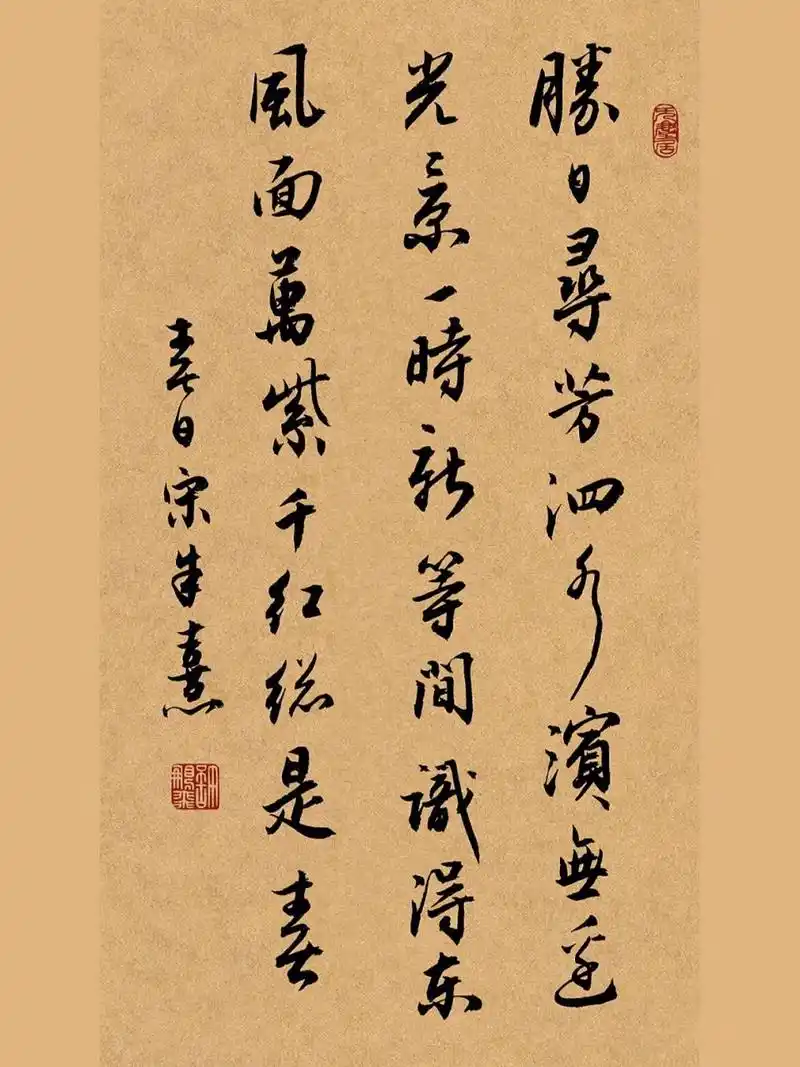 勝日尋芳泗水濱無邊
光景一時新等閒識得東
風面萬紫千紅總是春
春日宋朱熹